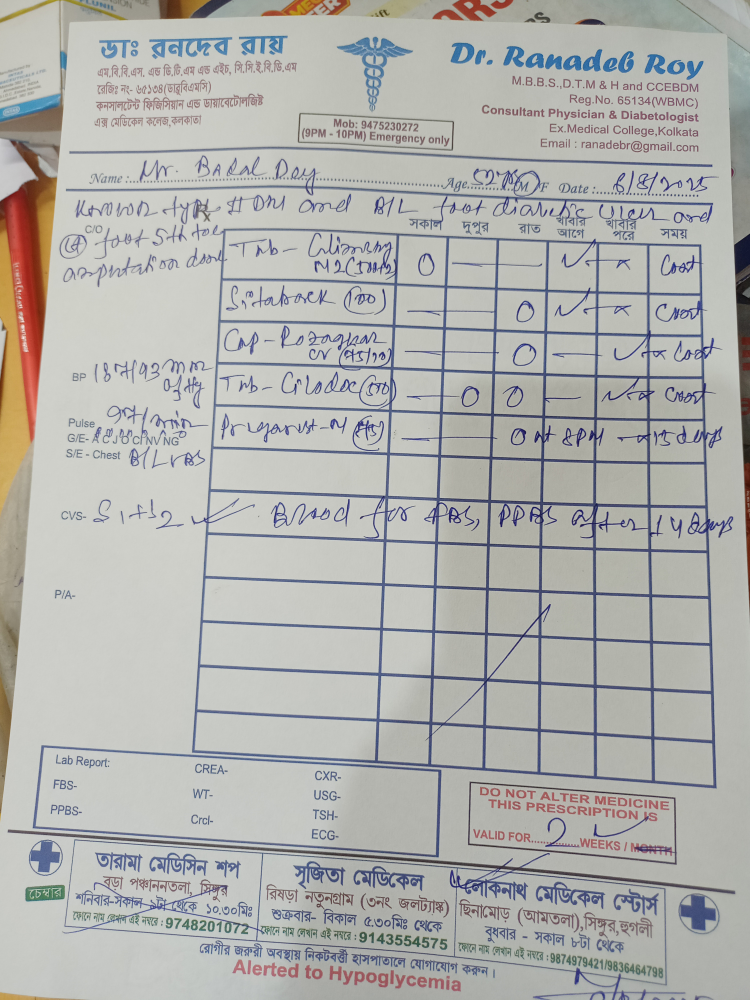 ডাঃ রনদেব রায়
এম.বি.বি.এস. এন্ড ডি.টি.এম এন্ড এইচ, সি.সি.ই.বি.ডি.এম
রেজিঃ নং- ৬৫১৩৪(ডাব্লুবিএমসি)
কনসালটেন্ট ফিজিসিয়ান এন্ড ডায়াবেটোলজিষ্ট
এক্স মেডিকেল কলেজ,কলকাতা
Mob: 9475230272
(9PM - 10PM) Emergency only
Dr. Ranadeb Roy
M.B.B.S.,D.T.M & H and CCEBDM
Reg.No. 65134(WBMC)
Consultant Physician & Diabetologist
Ex.Medical College,Kolkata
Email : ranadebr@gmail.com
Name : Mr. Badal Dey Age M F Date : 6/8/2025
Known type II DM and B/L foot diabetic ulcer and
C/O
foot 5th toe
amputation done
সকাল দুপুর রাত খাবার আগে খাবার পরে সময়
Tab-
M2 O Cont
O Cont
Cap- O Cont
BP 187/93 mm of Hg
Tab- O O Cont
Pulse 97/min
O at 8PM 15 days
G/E- A C J O Cl NV NG
S/E - Chest B/L VBS
CVS- S1+S2 Blood for FBS, PPBS after 14 days
P/A-
Lab Report:
FBS-
PPBS-
CREA-
WT-
Crcl-
CXR-
USG-
TSH-
ECG-
DO NOT ALTER MEDICINE
THIS PRESCRIPTION IS
VALID FOR 2 WEEKS / MONTH
চেম্বার
তারামা মেডিসিন শপ
বড়া পঞ্চাননতলা, সিঙ্গুর
শনিবার-সকাল ৯টা থেকে ১০.৩০মিঃ
ফোনে নাম লেখান এই নম্বরে : 9748201072
সৃজিতা মেডিকেল
রিষড়া নতুনগ্রাম (৩নং জলট্যাঙ্ক)
শুক্রবার- বিকাল ৫.৩০মিঃ থেকে
ফোনে নাম লেখান এই নম্বরে : 9143554575
লোকনাথ মেডিকেল স্টোর্স
ছিনামোড় (আমতলা),সিঙ্গুর,হুগলী
বুধবার - সকাল ৮টা থেকে
ফোনে নাম লেখান এই নম্বরে : 9874979421/9836464798
রোগীর জরুরী অবস্থায় নিকটবর্তী হাসপাতালে যোগাযোগ করুন।
Alerted to Hypoglycemia